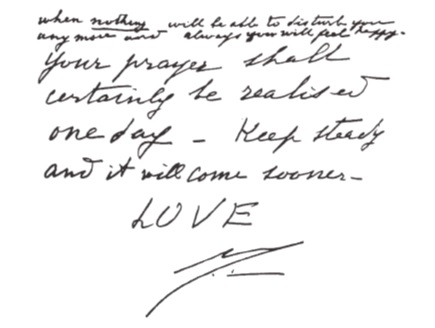 when nothing will be able to disturb you
any more and always you will feel happy.
Your prayer shall
certainly be realised
one day – Keep steady
and it will come sooner –
LOVE